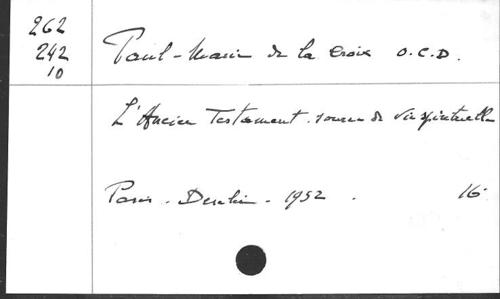 262
242
10
Paul-Marie de la Croix O.C.D.
L'Ancien Testament. source de vie spirituelle
Paris - Desclée - 1952. 16